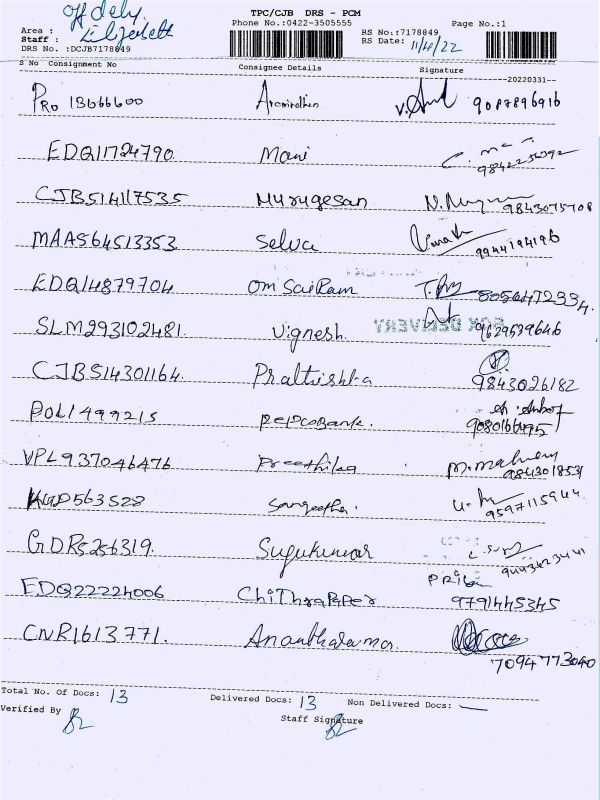 TPC/CJB DRS - PCM
Phone No.:0422-3505555
Page No.:1
off dely
Area :
Staff :
DRS No. :DCJB7178849
RS No.:7178849
RS Date: 11/4/22
S No Consignment No Consignee Details Signature
--20220331--
PRO 13066600 9087896916
EDQ11724790 Mani
CJB514117535 Murugesan 9843075708
MAA564513353 Selva 9944194196
EDQ14879704 Om Sai Ram 8056472334
BOX DELIVERY
SLM293102481 Vignesh 9629539646
CJB514301164 9843026182
POL1499215 Repcobank.
VPL937046476 Preethika
563528 Sangeetha. 9597115944
GDR5256319. Sugukumar
Priya
EDQ22224006 Chithra Paper 9791445345
CNR1613771. 7094773040
Total No. Of Docs: 13 Delivered Docs: 13 Non Delivered Docs: —
Verified By
Staff Signature